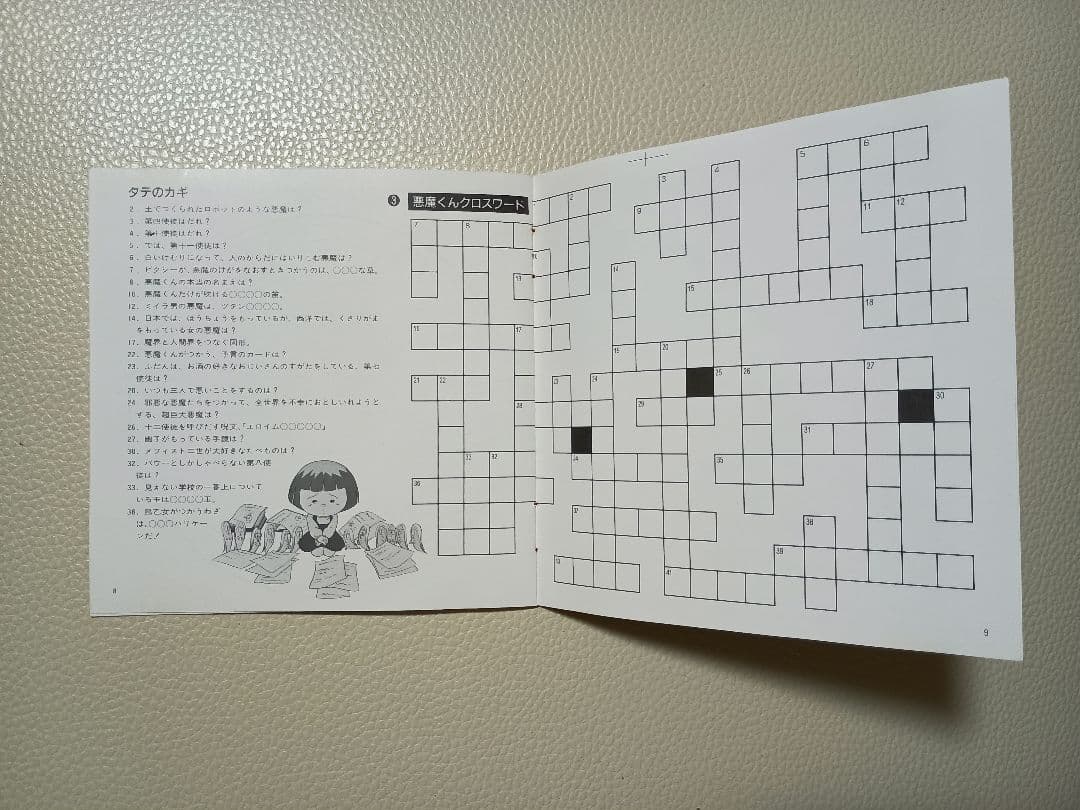 タテのカギ
2. 土でつくられたロボットのような悪魔は?
3. 第四使徒はだれ?
4. 第七使徒はだれ?
5. では、第十一使徒は?
6. 白いけむりになって、人のからだにはいりこむ悪魔は?
7. ピクシーが、悪魔のけがをなおすときつかうのは、○○○な草。
8. 悪魔くんの本当の名まえは?
10. 悪魔くんだけが吹ける○○○○の笛。
12. ミイラ男の悪魔は、ツタン○○○○。
14. 日本では、ほうちょうをもっているが、西洋では、くさりがまをもっている女の悪魔は?
17. 魔界と人間界をつなぐ図形。
22. 悪魔くんがつかう、予言のカードは?
23. ふだんは、お酒の好きなおじいさんのすがたをしている、第七使徒は?
20. いつも三人で悪いことをするのは?
24. 邪悪な悪魔たちをつかって、全世界を不幸におとしいれようとする、超巨大悪魔は?
26. 十二使徒を呼びだす呪文、「エロイム○○○○○」
27. 幽子がもっている手鏡は?
30. メフィスト二世が大好きなたべものは?
32. バウーとしかしゃべらない第八使徒は?
33. 見えない学校の一番上についている玉は○○○○玉。
38. 鳥乙女がつかうわざは、○○○ハリケーンだ!
8
❸ 悪魔くんクロスワード
2 3 4 5 6
7 8 9 10 11 12
13 14 15
16 17 18
19 20
21 22 23 24 25 26 27
28 29 30
31
32 33 34 35
36
37 38
39
40 41
9